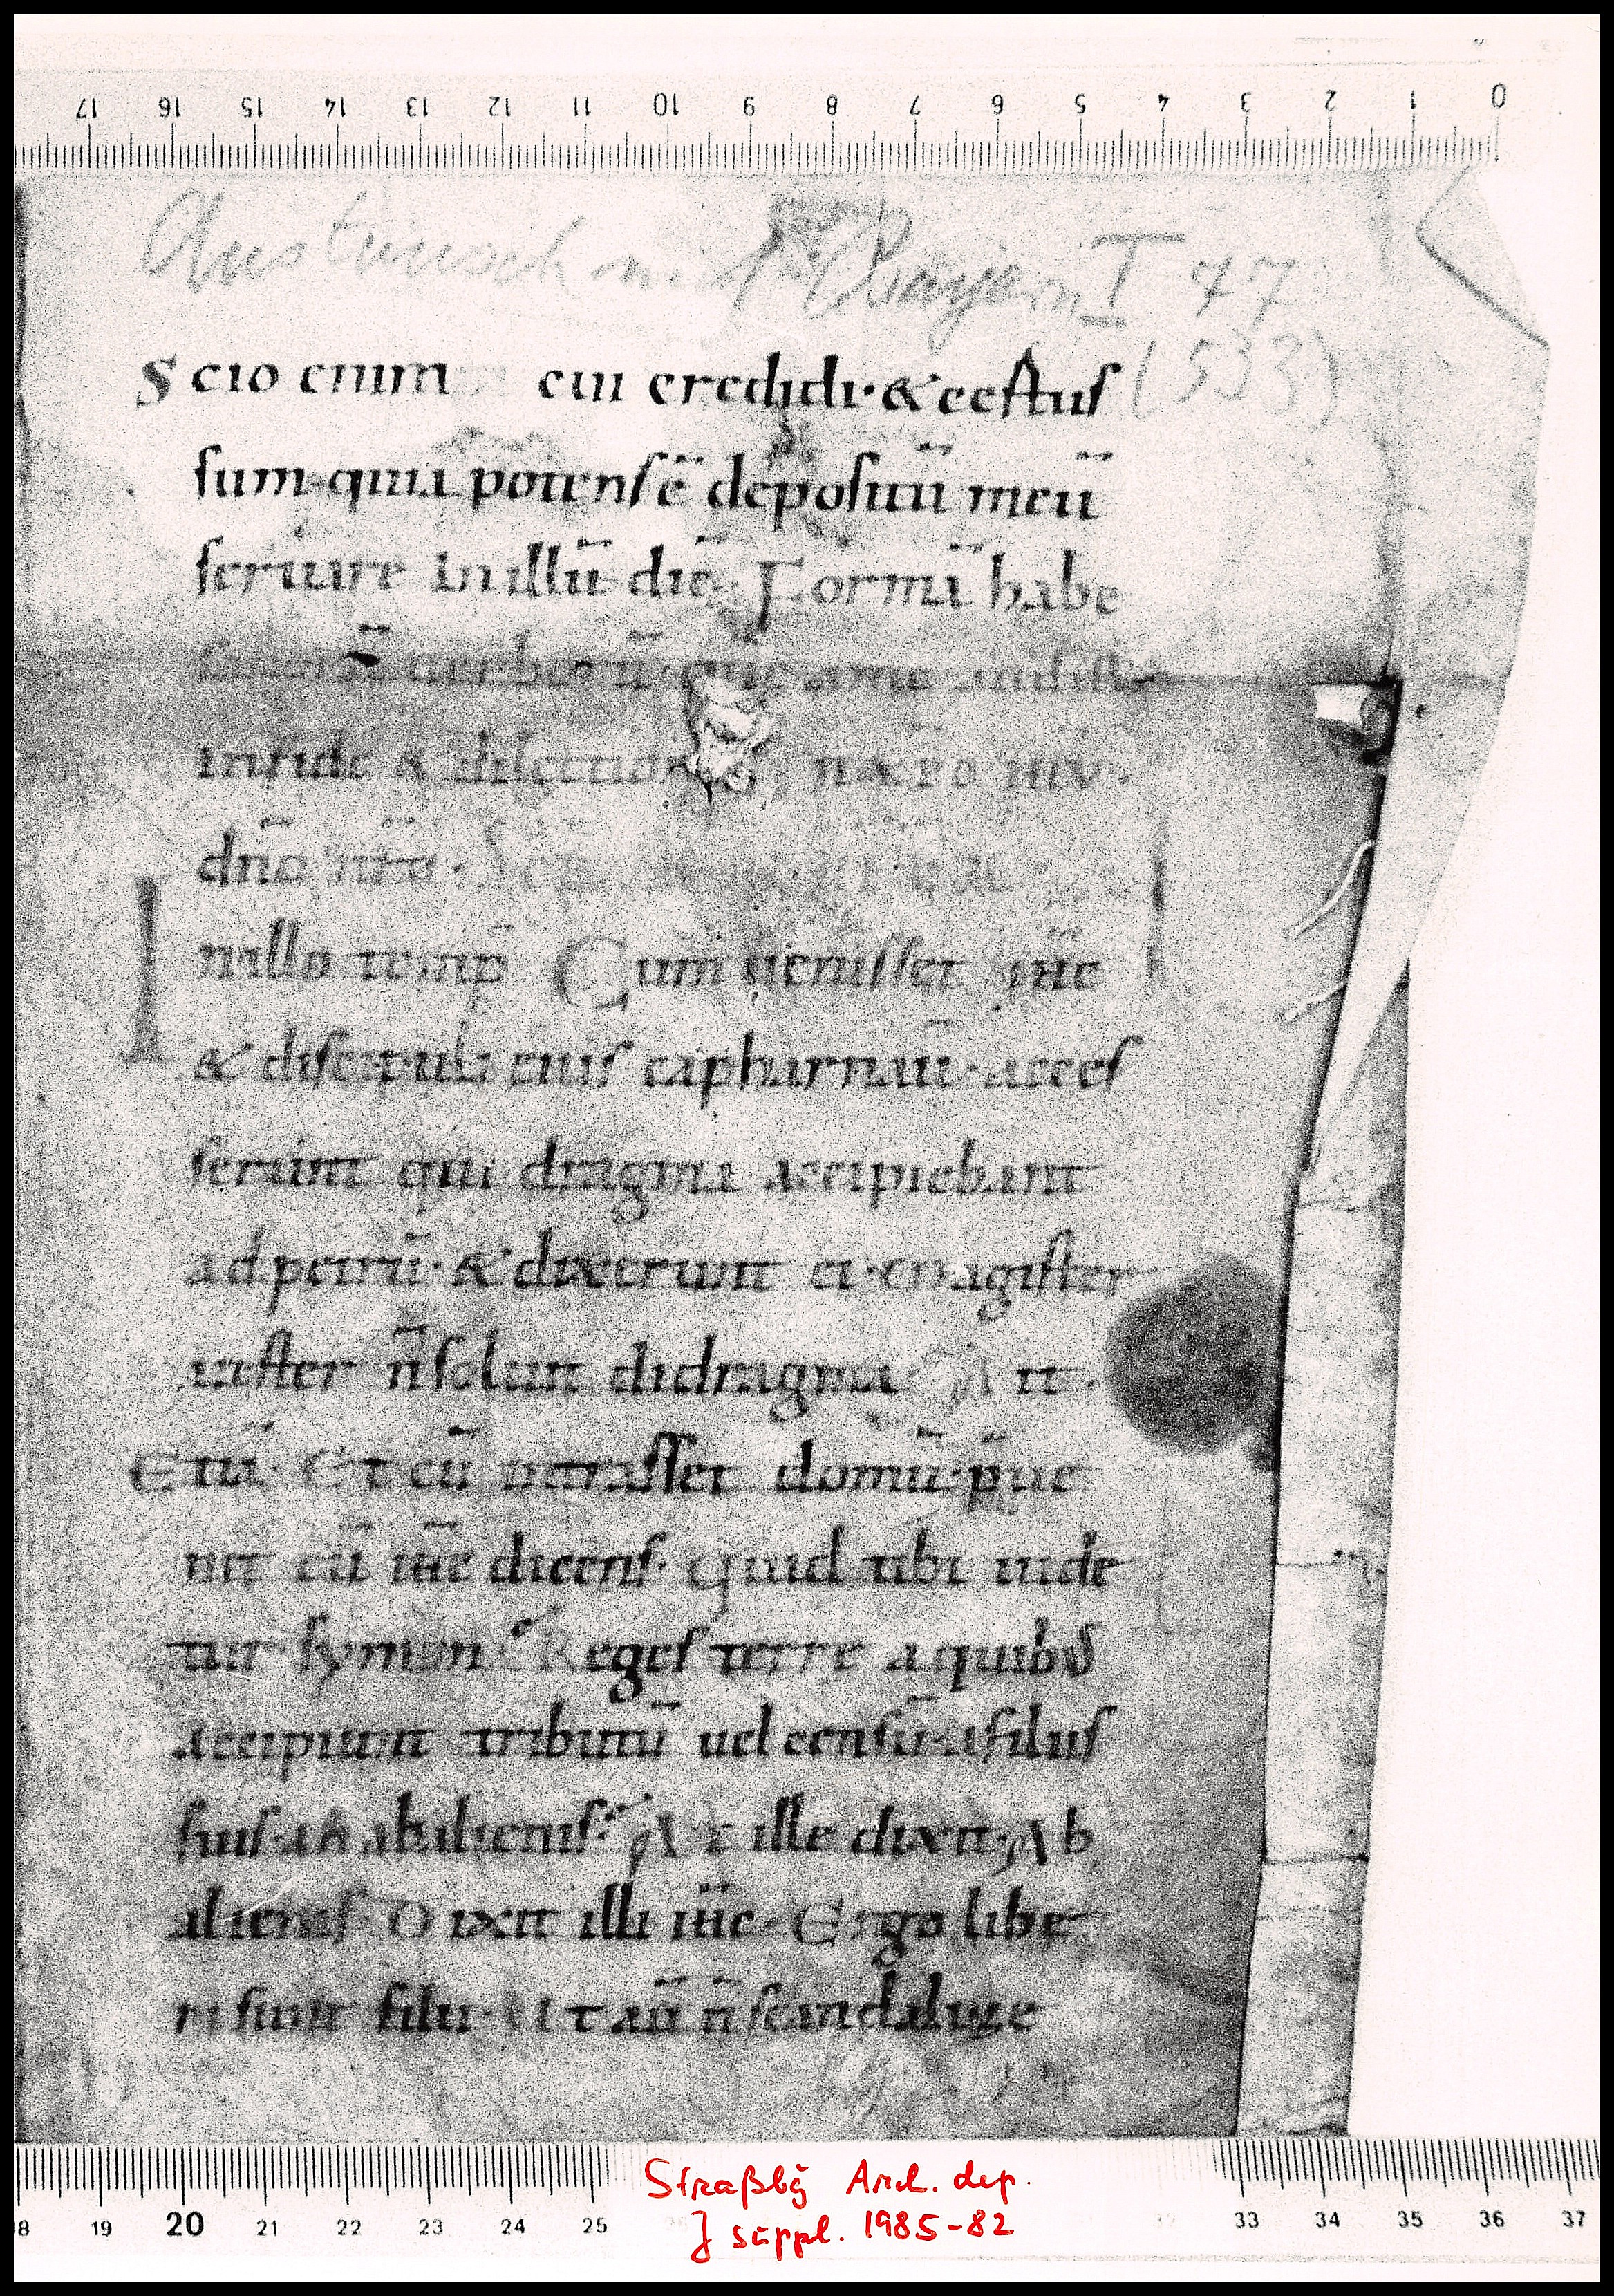 17 16 15 14 13 12 11 10 9 8 7 6 5 4 3 2 1 0
Austausch mit Bayern I 47
(533)
Scio enim cui credidi · & certus
sum quia potens ē depositū meū
seruare in illū diē. Formā habe
sanorū uerborū quę a me audisti
in fide & dilectione in xpo iħu
dño nro.
In illo temp̄ Cum uenisset iħc
& discipuli eius capharnaū · acces
serunt qui dragma accipiebant
ad petrū · & dixerunt ei · Magister
uester n̄ soluit didragma Ait ·
Etiā · Et cū intrasset domū · p̄ue
nit eū iħc dicens · Quid tibi uide
tur symon · Reges terre a quibus
accipiunt tributū uel censū · a filiis
suis · an ab alienis · At ille dixit · Ab
alienis · Dixit illi iħc · Ergo libe
ri sunt filii · Ut aū n̄ scandalize
18 19 20 21 22 23 24 25 33 34 35 36 37
Straßbg Arch. dep.
J suppl. 1985-82